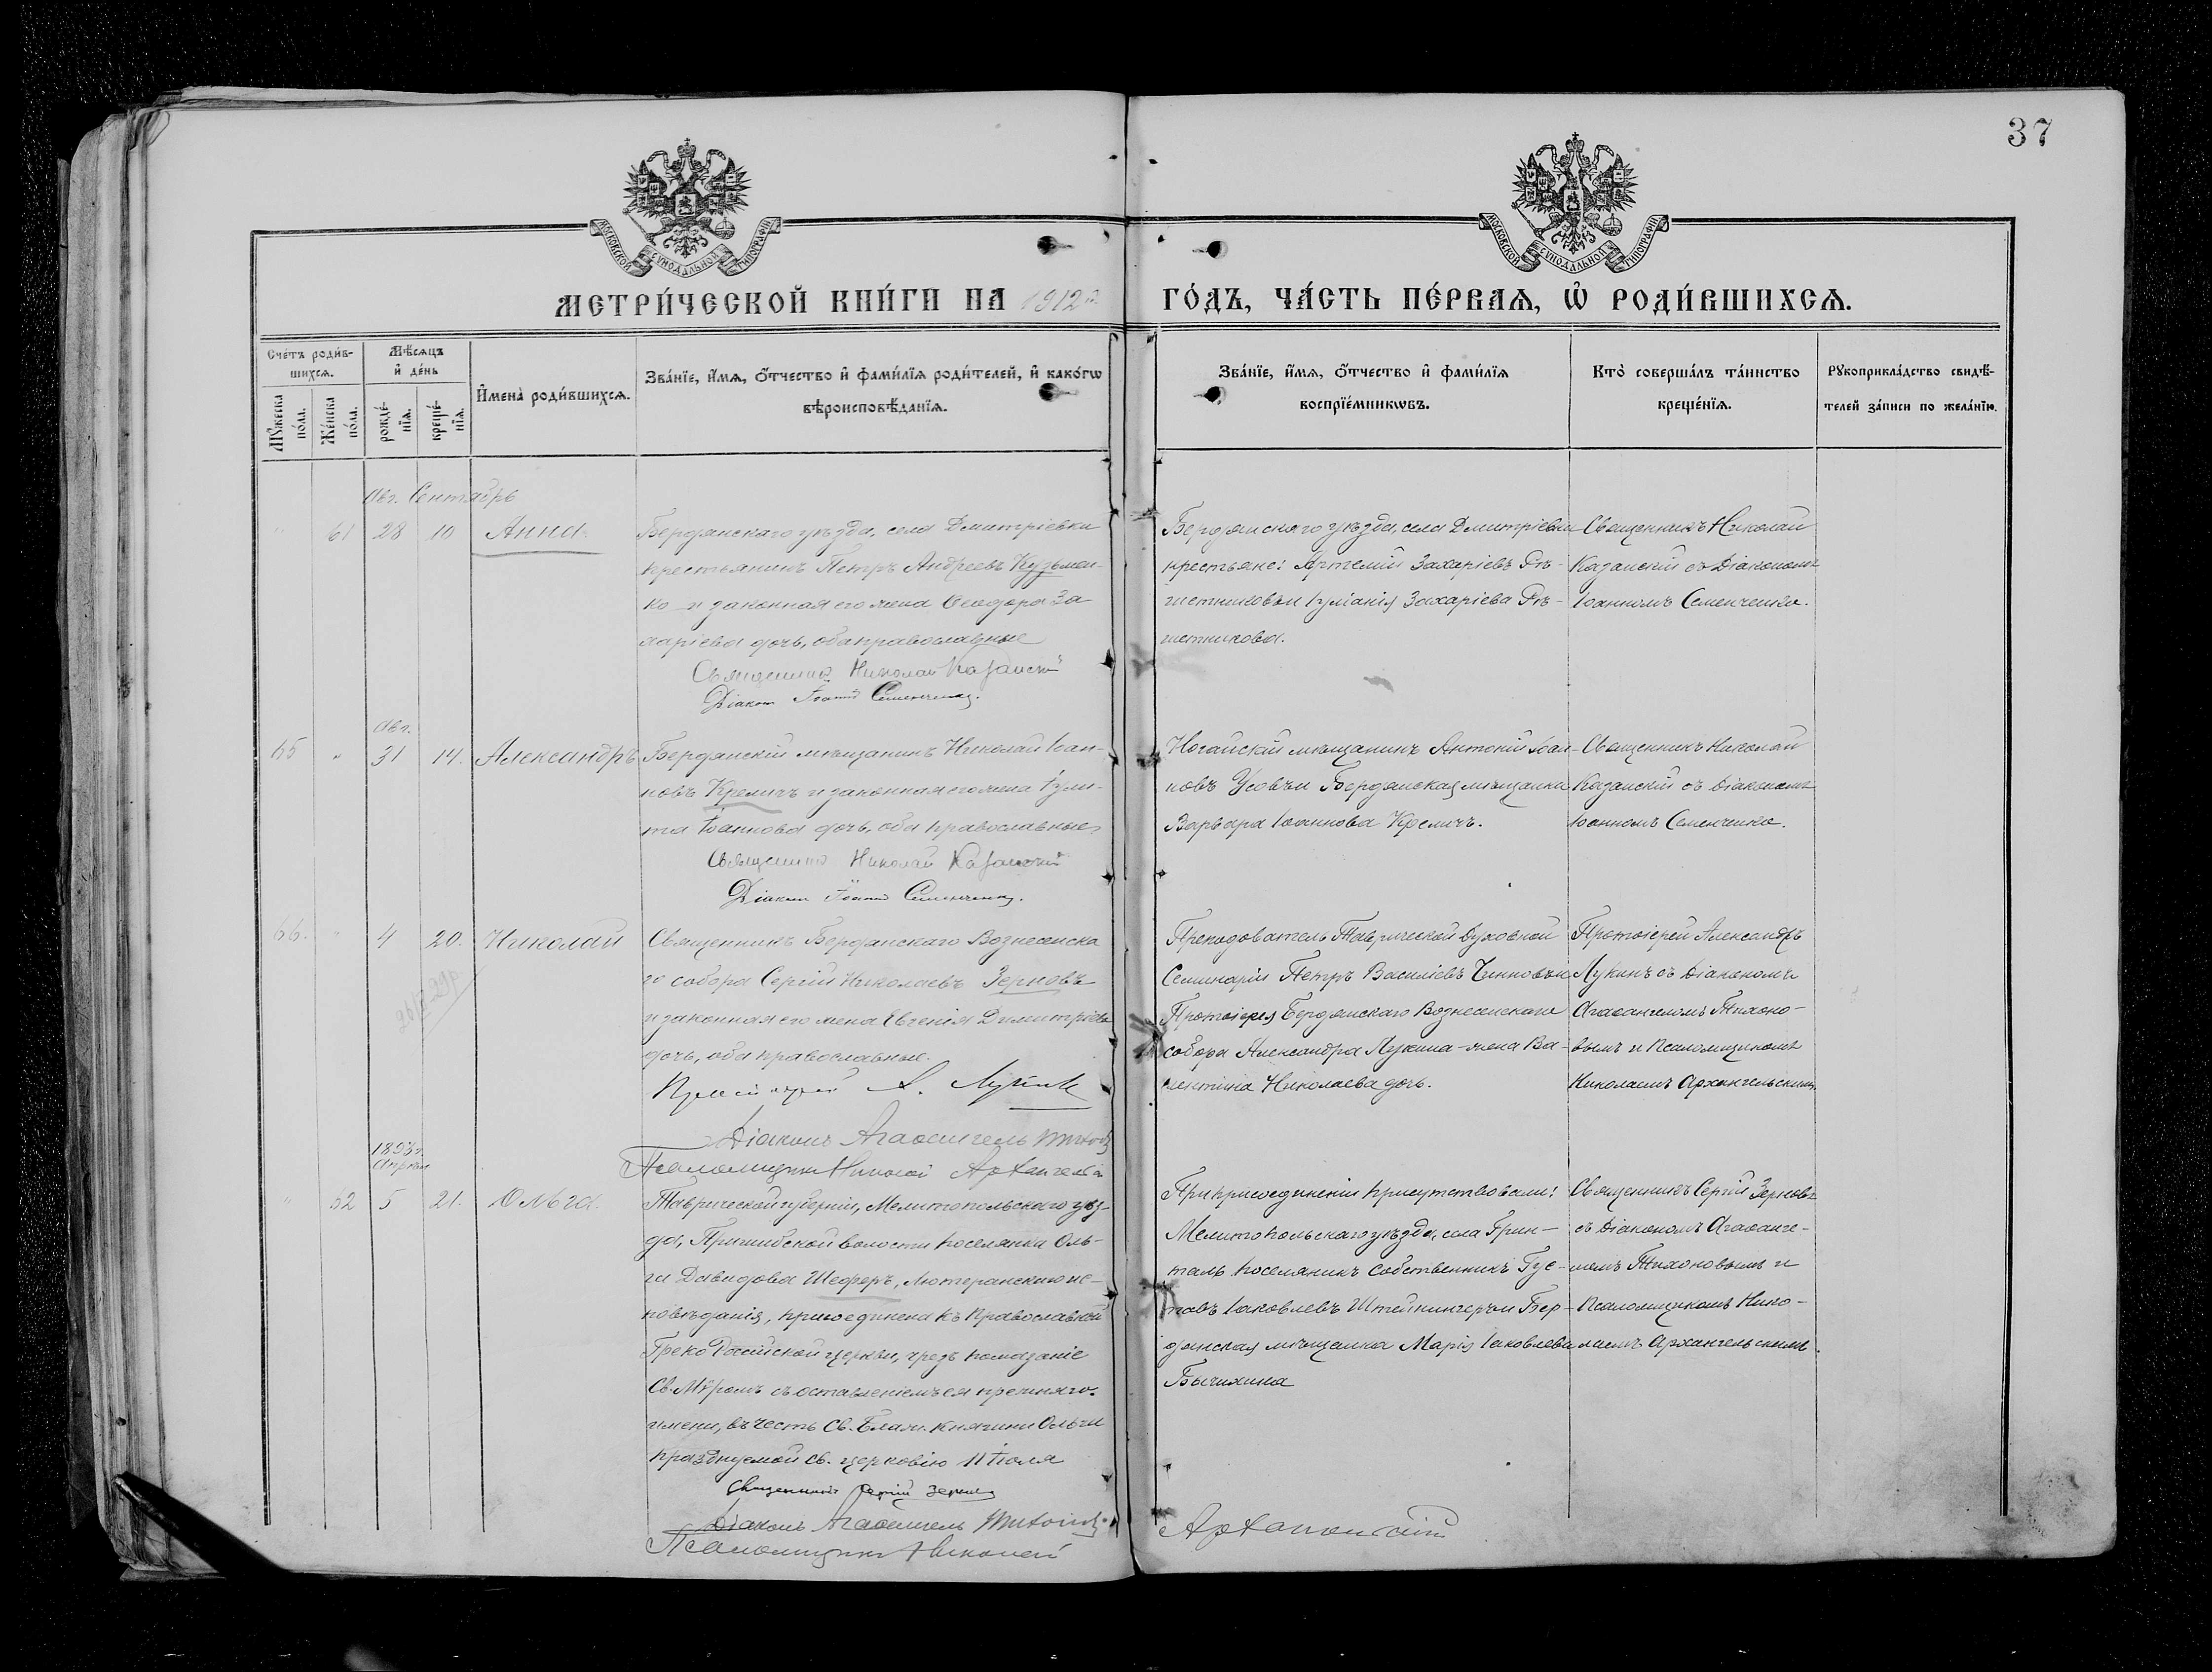 37
МОСКОВСКОЙ СѴНОДАЛЬНОЙ ТИПОГРАФІИ
МОСКОВСКОЙ СѴНОДАЛЬНОЙ ТИПОГРАФІИ
МЕТРИ́ЧЕСКОЙ КНИ́ГИ НА 1912й
ГО́ДЪ, ЧА́СТЬ ПЕ́РВАѦ, Ѡ҆ РОДИ́ВШИХСѦ.
Сче́тъ роди́в-
шихсѧ.
Мꙋ́жеска по́ла.
Же́нска по́ла.
Мѣ́сѧцъ
и҆ де́нь
рожде́-
нїѧ.
креще́-
нїѧ.
И҆мена̀ роди́вшихсѧ.
Зва́нїе, и҆́мѧ, ѻ҆́тчество и҆ фами́лїѧ роди́телей, и҆ како́гѡ
вѣроисповѣ́данїѧ.
Зва́нїе, и҆́мѧ, ѻ҆́тчество и҆ фами́лїѧ
воспрїе́мникѡвъ.
Кто̀ соверша́лъ та́инство
креще́нїѧ.
Рꙋкоприкла́дство свидѣ́-
телей за́писи по жела́нїю.
Авг. Сентябрь
" 61 28 10 Анна
Бердянскаго уѣзда, села Дмитріевки
крестьянинъ Петръ Андреевъ Кузьмен-
ко и законная его жена Ѳеодора За
харіева дочь, оба православные
Священникъ Николай Казанскій
Діаконъ Іоаннъ Семенченко.
Бердянскаго уѣзда, села Дмитріевки
крестьяне: Артемій Захаріевъ Рѣ-
шетниковъ и Іуліанія Захаріева Рѣ-
шетникова.
Священникъ Николай
Казанскій съ Діакономъ
Іоанномъ Семенченко.
Авг.
65 " 31 14. Александръ
Бердянскій мѣщанинъ Николай Іоан-
новъ Кремичъ и законная его жена Іули-
та Іоаннова дочь, оба православные
Священникъ Николай Казанскій
Діаконъ Іоаннъ Семенченко.
Ногайскій мѣщанинъ Антоній Іоан-
новъ Усовъ и Бердянская мѣщанка
Варвара Іоаннова Кремичъ.
Священникъ Николай
Казанскій съ Діакономъ
Іоанномъ Семенченко.
66. " 4 20. Николай
Священникъ Бердянскаго Вознесенска
го собора Сергій Николаевъ Зерновъ
и законная его жена Евгенія Димитріева
дочь, оба православные.
Протоіерей А. Лукинъ
Діаконъ Агаѳангелъ Тихоновъ
Псаломщикъ Николай Архангельскій
Преподователь Таврической Духовной
Семинаріи Петръ Василіевъ и
Протоіерея Бердянскаго Вознесенскаго
собора Александра Лукина жена Ва-
лентина Николаева дочь.
Протоіерей Александръ
Лукинъ съ Діакономъ
Агаѳангеломъ Тихоно-
вымъ и Псаломщикомъ
Николаемъ Архангельскимъ
Апрѣля
" 62 5 21. Ольга.
Таврической губерніи, Мелитопольскаго уѣз-
да, Пришибской волости поселянка Оль-
га Давидова Шеферъ, Лютеранскаго ис-
повѣданія, присоединена къ Православной
Греко Россійской церкви, чрезъ помазаніе
Св. Мѵромъ съ оставленіемъ ея прежняго
имени, въ честь Св. Благ. Княгини Ольги
празднуемой св. церковію 11 Іюля
Священникъ Сергій Зерновъ
Діаконъ Агаѳангелъ Тихоновъ
Псаломщикъ Николай Архангельскій
При присоединеніи присутствовали:
Мелитопольскаго уѣзда, села Грин-
таль поселянинъ собственникъ Гус-
тавъ Іаковлевъ Штейнингеръ и Бер-
дянская мѣщанка Марія Іаковлева
Бычихина
Священникъ Сергій Зерновъ
съ Діакономъ Агаѳанге-
ломъ Тихоновымъ и
Псаломщикомъ Нико-
лаемъ Архангельскимъ.